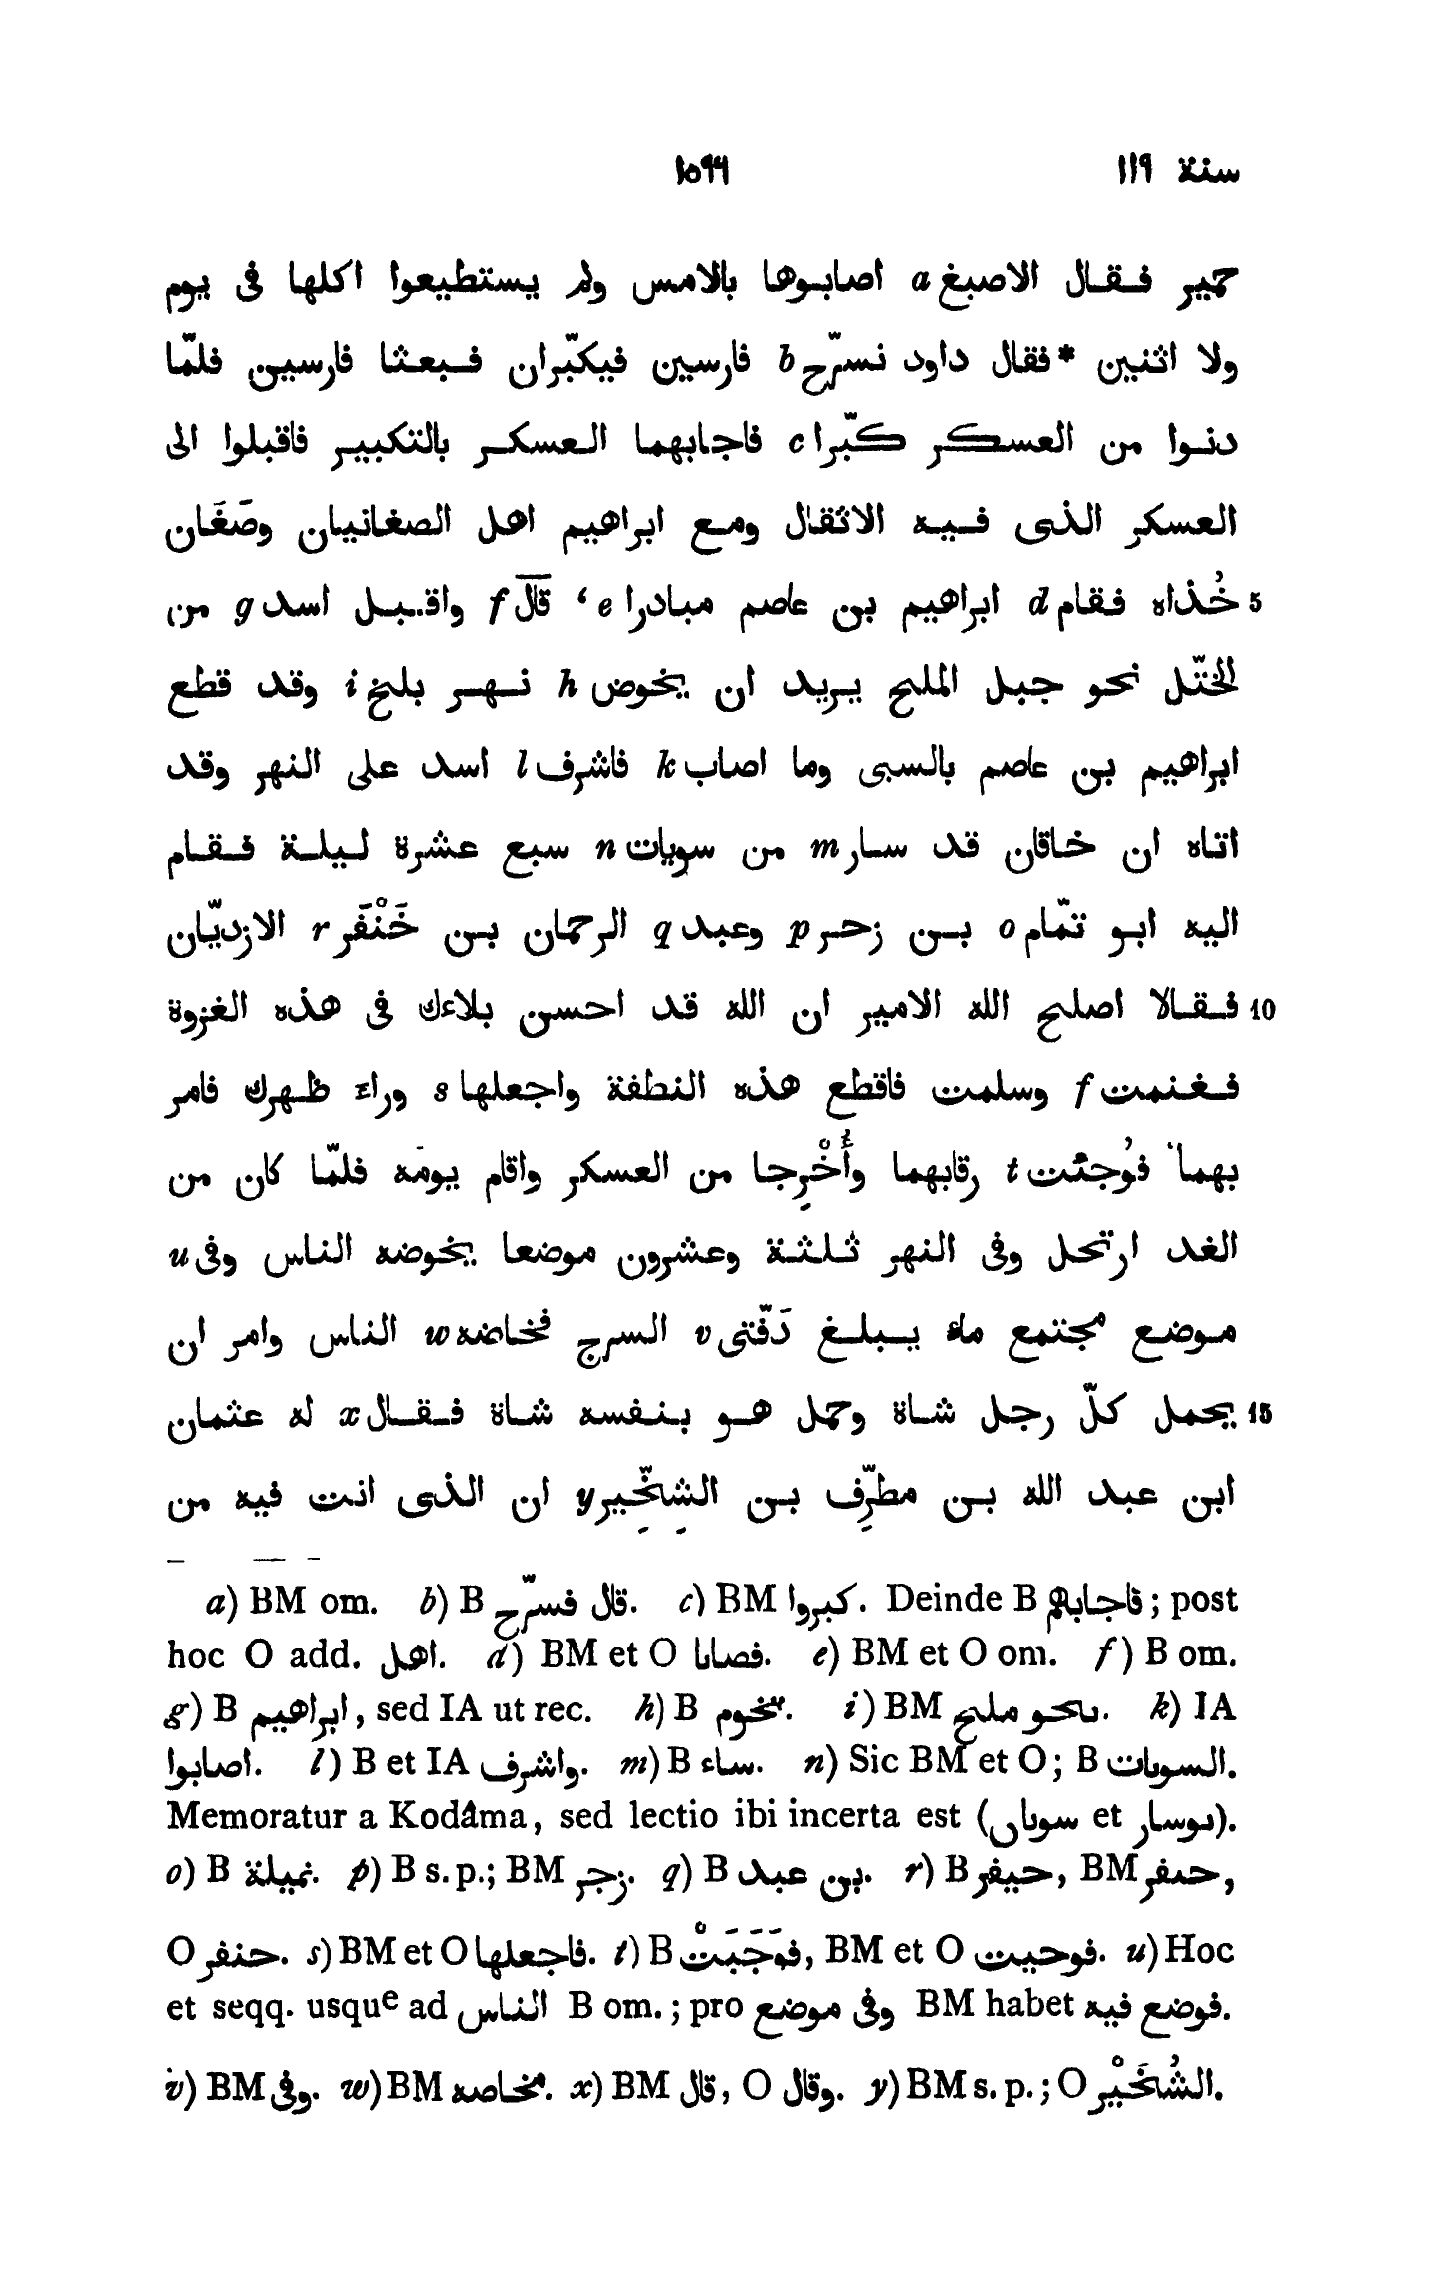 سنة ١١٩ ١٥٩٦
حمير فقال الاصبغ a اصابوها بالامس ولم يستطيعوا اكلها فى يوم
ولا اثنين *فقال داود نسرّح b فارسين فيكبّران فبعثا فارسين فلمّا
دنوا من العسكر كبّرا c فاجابهما العسكر بالتكبير فاقبلوا الى
العسكر الذى فيه الاثقال ومع ابراهيم اهل الصغانيان وصَغَان
5 خُذاه فقام d ابراهيم بن عاصم مبادرا e ، قال f واقبل اسد g من
الختّل نحو جبل الملح يريد ان يخوض h نهر بلخ i وقد قطع
ابراهيم بن عاصم بالسبى وما اصاب k فاشرف l اسد على النهر وقد
اتاه ان خاقان قد سار m من سويات n سبع عشرة ليلة فقام
اليه ابو تمّام o بن زحر p وعبد q الرحمان بن خَنْفَر r الازديّان
10 فقالا اصلح الله الامير ان الله قد احسن بلاءك فى هذه الغزوة
فغنمت f وسلمت فاقطع هذه النطفة واجعلها s وراء ظهرك فامر
بهما فوُجئت t رقابهما وأُخْرِجا من العسكر واقام يومَه فلمّا كان من
الغد ارتحل وفى النهر ثلثة وعشرون موضعا يخوضه الناس وفى u
موضع مجتمع ماء يبلغ دَفّتى v السرج فخاضه w الناس وامر ان
15 يحمل كلّ رجل شاة وحمل هو بنفسه شاة فقال x له عثمان
ابن عبد الله بن مطرِّف بن الشِخِّير y ان الذى انت فيه من
a) BM om. b) B قال فسرّح. c) BM كبروا. Deinde B فاجابهم; post
hoc O add. اهل. d) BM et O فصانا. e) BM et O om. f) B om.
g) B ابراهيم, sed IA ut rec. h) B يتخوم. i) BM ىاحو ملح. k) IA
اصابوا. l) B et IA واشرف. m) B ساء. n) Sic BM et O; B السوبات.
Memoratur a Kodâma, sed lectio ibi incerta est (سوىاں et ىوسار).
o) B نميلة. p) B s. p.; BM زجر. q) B بن عبد. r) B حيفر, BM حىفر,
O حنفر. s) BM et O فاجعلها. t) B فوَجَبَتْ, BM et O فوحيت. u) Hoc
et seqq. usque ad الناس B om.; pro وفى موضع BM habet فوضع فيه.
v) BM وفى. w) BM مخاصه. x) BM قال, O وقال. y) BM s. p.; O الشُخَيْر.